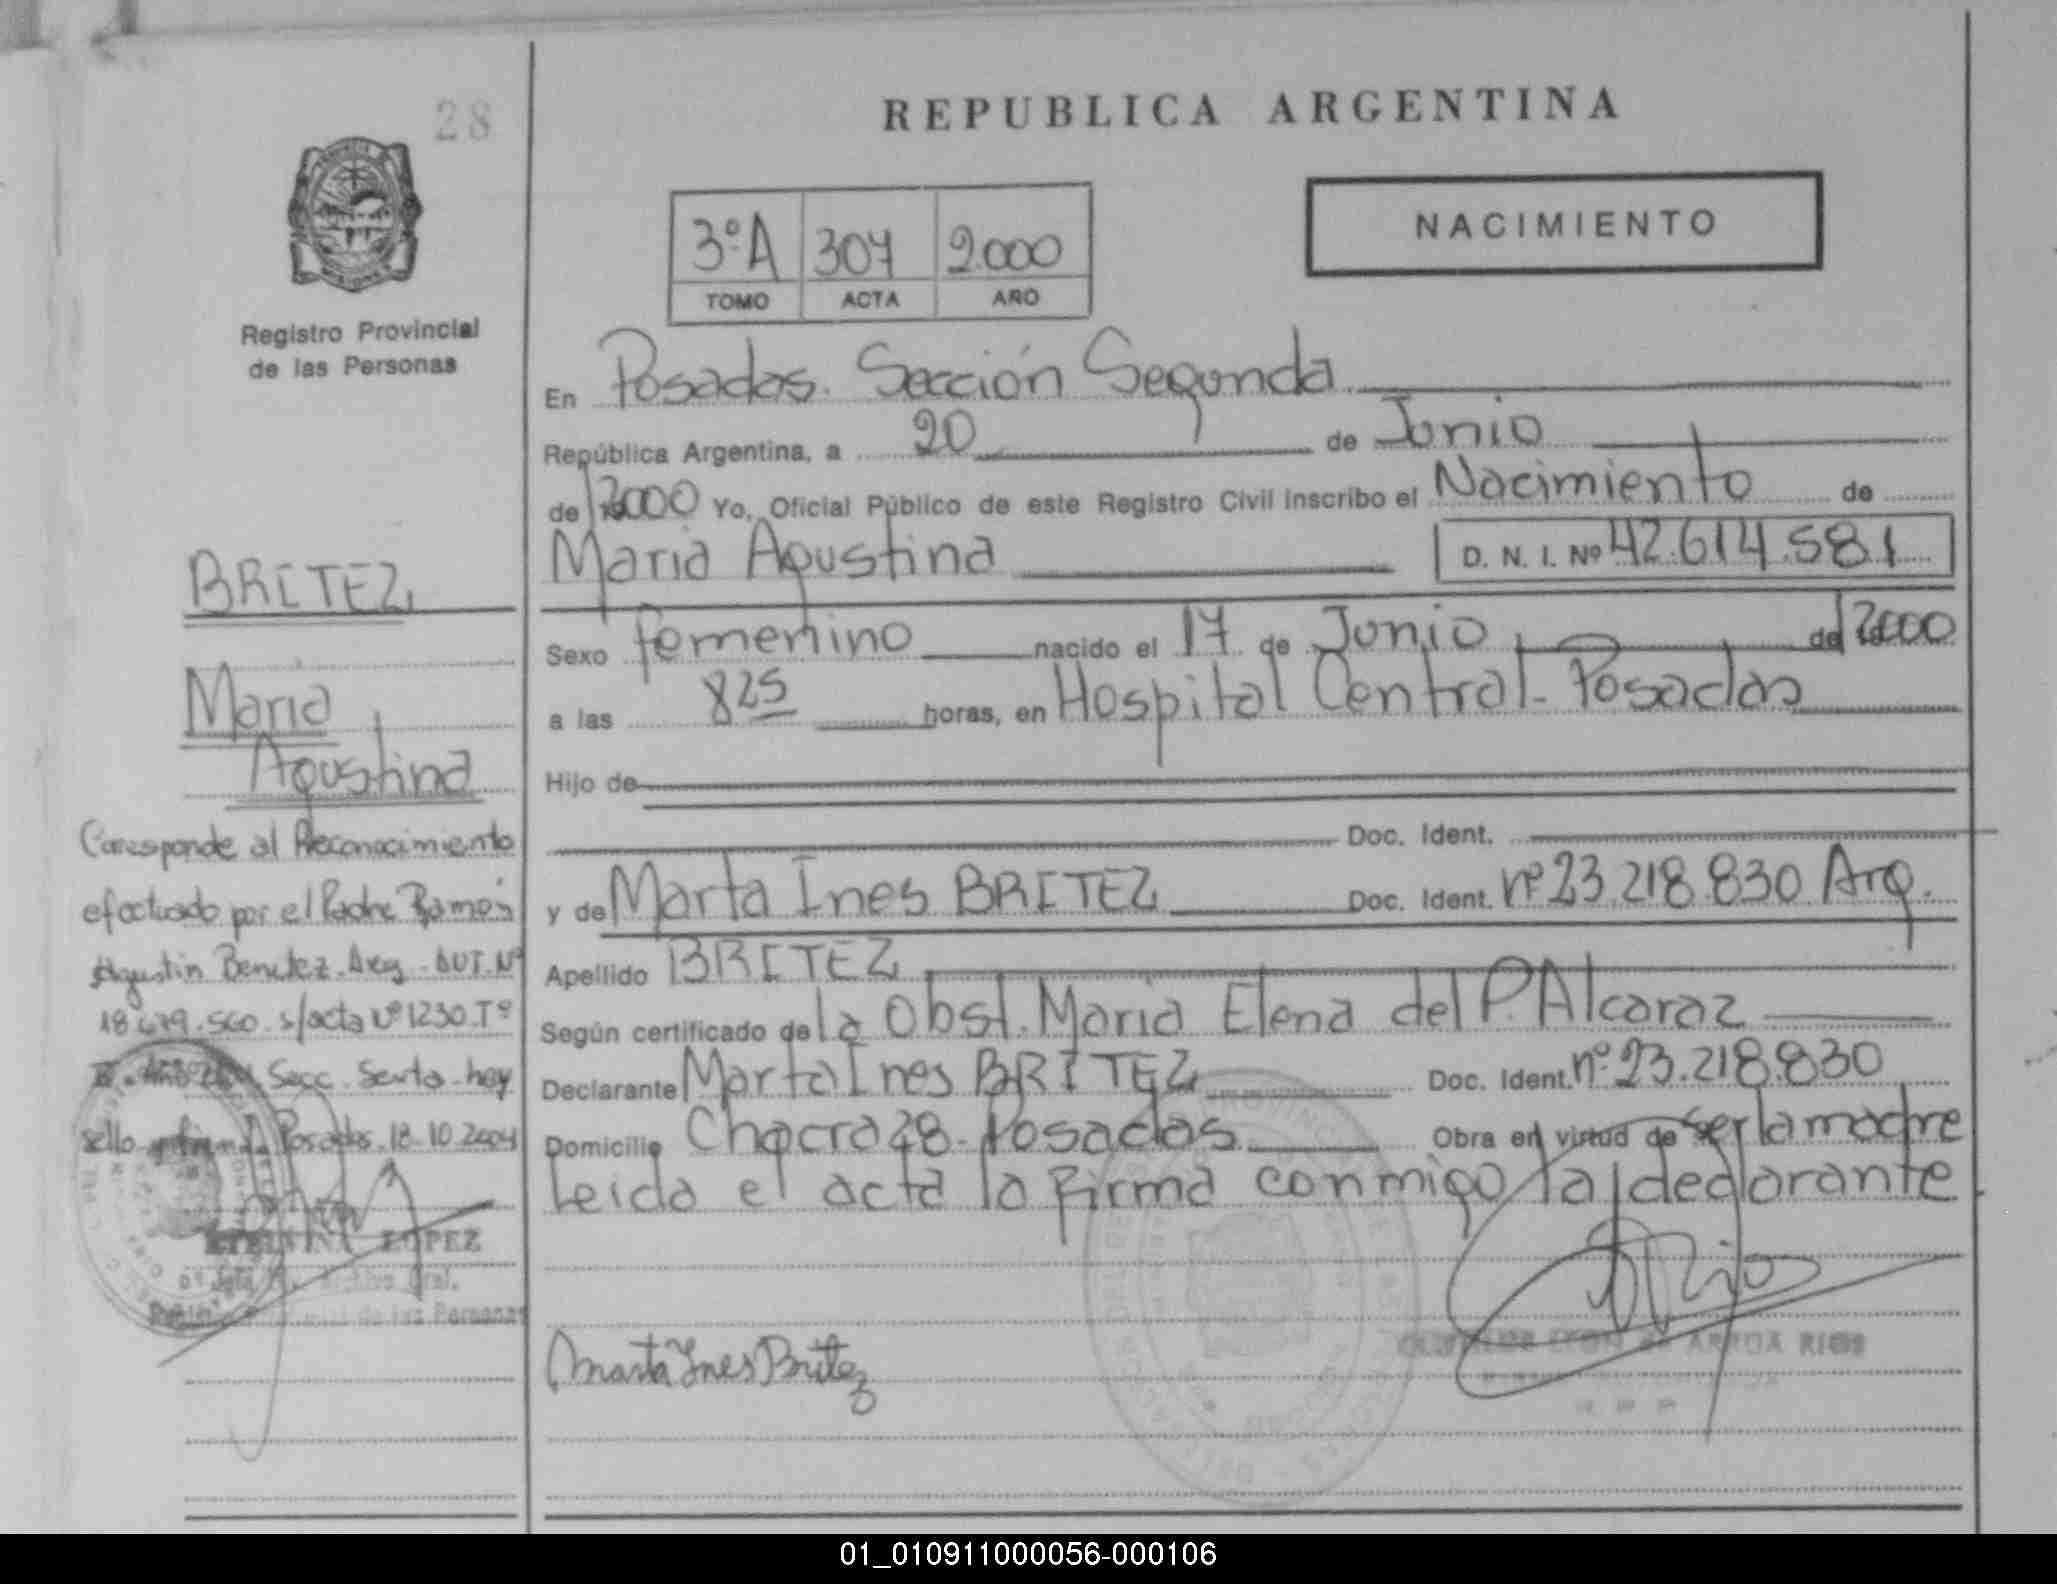 28
REPUBLICA ARGENTINA
NACIMIENTO
3ºA 307 2.000
TOMO ACTA AÑO
Registro Provincial
de las Personas
En Posadas. Sección Segunda
República Argentina, a 20 de Junio
de 2000 Yo, Oficial Público de este Registro Civil inscribo el Nacimiento de
Maria Agustina D. N. I. Nº 42.614.581
Sexo femenino nacido el 17 de Junio de 2000
a las 8 25 horas, en Hospital Central - Posadas
Hijo de
Doc. Ident.
y de Marta Ines BRITEZ Doc. Ident. nº 23.218.830 Arg.
Apellido BRITEZ
Según certificado de la Obst. Maria Elena del P. Alcaraz
Declarante Marta Ines BRITEZ Doc. Ident. nº 23.218.830
Domicilio Chacra 28 - Posadas Obra en virtud de ser la madre
Leida el acta la firma conmigo la declarante
Marta Ines Britez
BRITEZ
Maria
Agustina
Coresponde al Reconocimiento
efectuado por el Padre Ramón
Agustin Benitez - Arg - Nº
18.679.560 s/acta Nº 1230 Tº
Secc. Sexta - hoy
sello y firma Posadas. 18.10.2004
LOPEZ
Archivo Gral.
de las Personas
RIOS
01_010911000056-000106